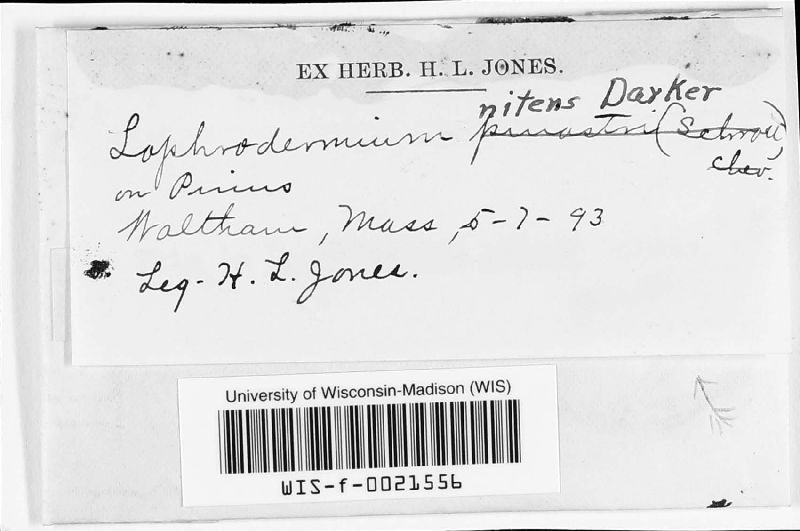 EX HERB. H. L. JONES.
nitens Darker
Lophrodermium pinastri (Schrad),
Chev.
on Pinus
Waltham, Mass, 5-7-93
Leg. H. L. Jones.
University of Wisconsin-Madison (WIS)
WIS-f-0021556